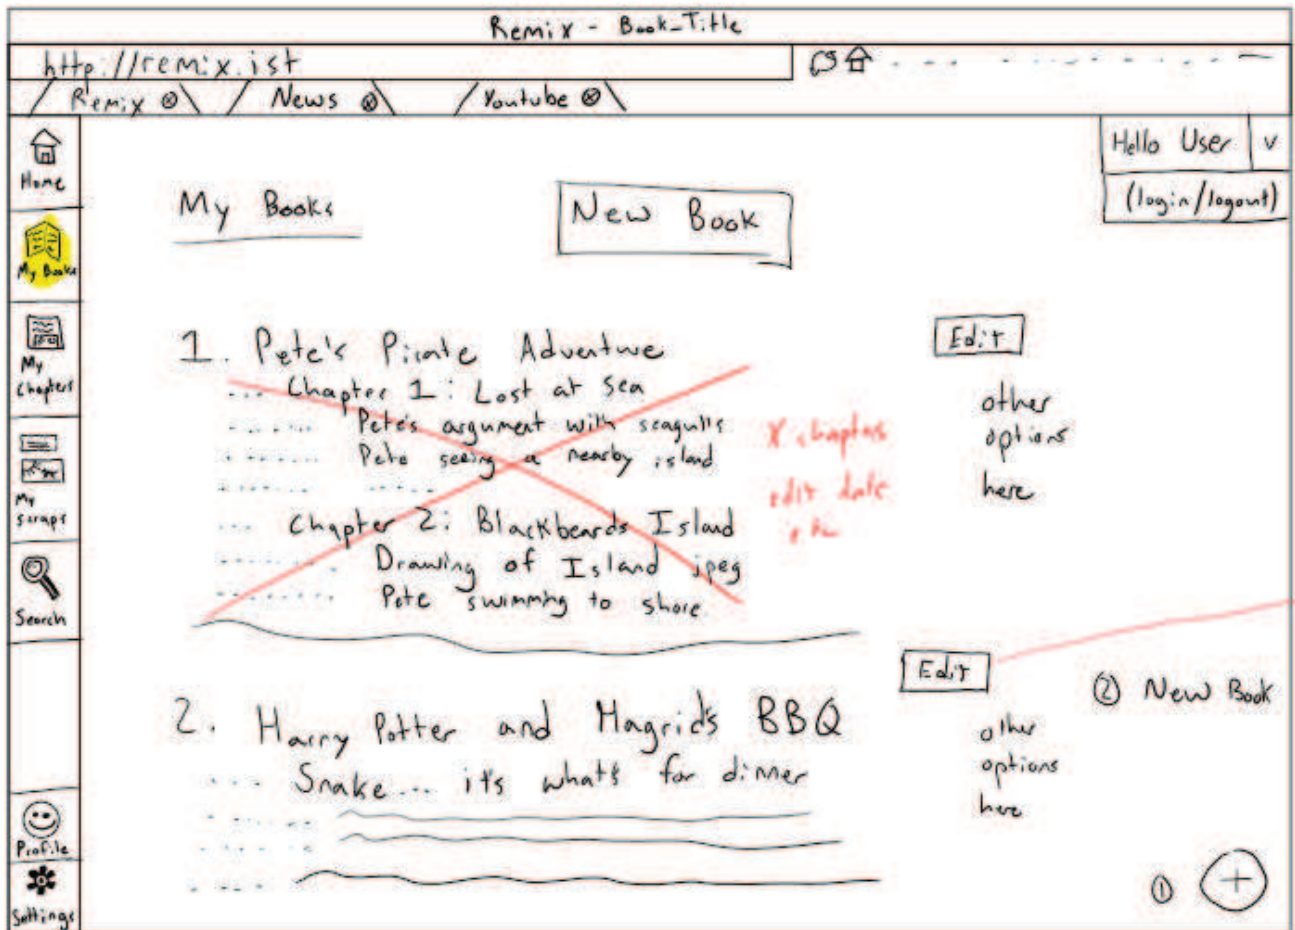 Remix - Book_Title
http://remix.ist
Remix
News
Youtube
Hello User v
(login/logout)
Home
My Books
My
Chapters
My
scraps
Search
Profile
Settings
My Books
New Book
1. Pete's Pirate Adventure
Edit
... Chapter 1: Lost at sea
Pete's argument with seagulls
Pete seeing a nearby island
Chapter 2: Blackbeards Island
Drawing of Island jpeg
Pete swimming to shore
X chapters
edit date
other
options
here
2. Harry Potter and Hagrid's BBQ
Edit
Snake... it's what's for dinner
other
options
here
② New Book
① +